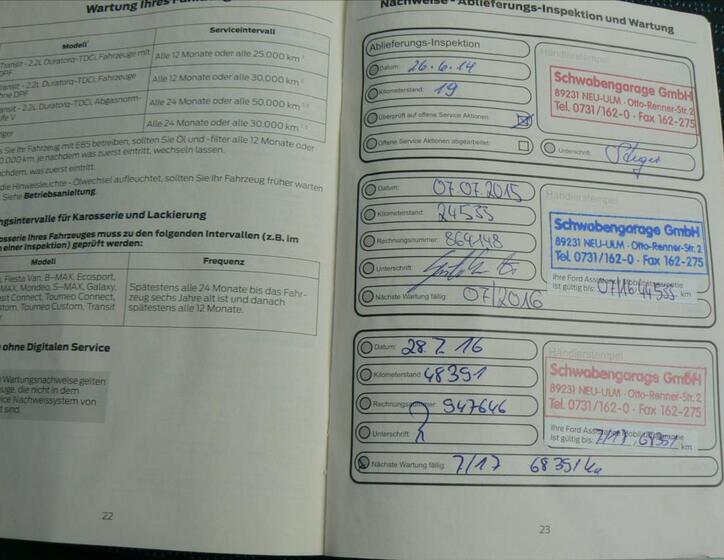 Wartung Ihres
Serviceintervall
Modell
Transit - 2.2L Duratorq-TDCi, Fahrzeuge mit
DPF
Alle 12 Monate oder alle 25.000 km
Transit - 2.2L Duratorq-TDCi, Fahrzeuge
ohne DPF
Alle 12 Monate oder alle 30.000 km
Transit - 2.2L Duratorq-TDCi, Abgasnorm-
V
Alle 24 Monate oder alle 50.000 km
Alle 24 Monate oder alle 30.000 km
Sie Ihr Fahrzeug mit E85 betreiben, sollten Sie Öl und -filter alle 12 Monate oder
0.000 km, je nachdem was zuerst eintritt, wechseln lassen.
nachdem, was zuerst eintritt.
die Hinweisleuchte - Ölwechsel aufleuchtet, sollten Sie Ihr Fahrzeug früher warten
Siehe Betriebsanleitung.
ngsintervalle für Karosserie und Lackierung
osserie Ihres Fahrzeuges muss zu den folgenden Intervallen (z.B. im
einer Inspektion) geprüft werden:
Modell
Frequenz
Fiesta Van, B-MAX, Ecosport,
MAX, Mondeo, S-MAX, Galaxy,
sit Connect, Tourneo Connect,
stom, Tourneo Custom, Transit
Spätestens alle 24 Monate bis das Fahr-
zeug sechs Jahre alt ist und danach
spätestens alle 12 Monate.
ohne Digitalen Service
Wartungsnachweise gelten
uge, die nicht in dem
ice Nachweissystem von
t sind.
22
Nachweise - Ablieferungs-Inspektion und Wartung
Ablieferungs-Inspektion
Händlerstempel
Datum: 26.6.14
Kilometerstand: 19
Überprüft auf offene Service Aktionen:
Offene Service Aktionen abgearbeitet:
Schwabengarage GmbH
89231 NEU-ULM · Otto-Renner-Str. 2
Tel. 0731/162-0 · Fax 162-275
Unterschrift:
Datum: 07.07.2015
Kilometerstand: 24555
Rechnungsnummer: 864148
Unterschrift:
Nächste Wartung fällig: 07/2016
Händlerstempel
Schwabengarage GmbH
89231 NEU-ULM · Otto-Renner-Str. 2
Tel. 0731/162-0 · Fax 162-275
Ihre Ford Assistance Mobilitätsgarantie
ist gültig bis: 07/16 44555 km
Datum: 28.7.16
Kilometerstand: 48391
Rechnungsnummer: 947646
Unterschrift:
Nächste Wartung fällig: 7/17 68391 km
Händlerstempel
Schwabengarage GmbH
89231 NEU-ULM · Otto-Renner-Str. 2
Tel. 0731/162-0 · Fax 162-275
Ihre Ford Assistance Mobilitätsgarantie
ist gültig bis: 7/17, 68391 km
23